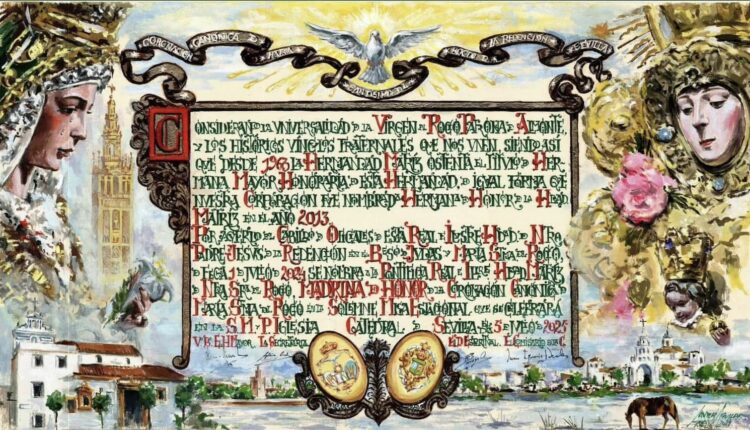 CORONACIÓN CANÓNICA D MARÍA SANTÍSIMA DEL ROCÍO D LA REDENCIÓN SEVILLA
CONSIDERANDO LA UNIVERSALIDAD D LA VIRGEN DL ROCÍO, PATRONA D ALMONTE,
Y LOS HISTÓRICOS VÍNCULOS FRATERNALES QUE NOS UNEN, SIENDO ASÍ
QUE DESDE LA HERMANDAD MATRIZ OSTENTA EL TÍTULO D HER-
MANA MAYOR HONORARIA D ESTA HERMANDAD, D IGUAL FORMA QUE
NUESTRA CORPORACIÓN FUE NOMBRADA HERMANA D HONOR D LA HDAD.
MATRIZ EN EL AÑO 2013.
POR ACUERDO DL CABILDO D OFICIALES D ESTA REAL E ILUSTRE HDAD. D NTRO.
PADRE JESÚS D LA REDENCIÓN EN EL BESO D JUDAS, D MARÍA STMA. DL ROCÍO,
D FECHA 1 D JULIO D 2024 SE NOMBRA A LA PONTIFICIA, REAL E ILTRE. HDAD. MATRIZ
D NTRA. SRA. DL ROCÍO, MADRINA D HONOR D LA CORONACIÓN CANÓNICA D
MARÍA STMA. DL ROCÍO EN SOLEMNE MISA ESTACIONAL QUE SE CELEBRARÁ
EN LA S.M.P. IGLESIA CATEDRAL D SEVILLA EL 5 D JULIO D 2025
Vº Bº EL HNO. MAYOR LA SECRETARIA